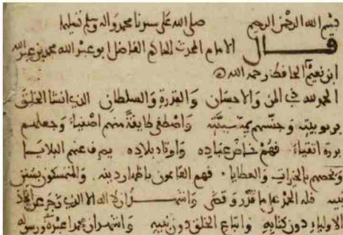 بسم الله الرحمن الرحيم صلى الله على سيدنا محمد واله وسلم تسليما
قال الامام المحدث الحاكم الفاضل ابو عبد الله محمد بن عبد الله
ابن نعيم الحافظ رحمه الله
الحمد لله ذي المن والاحسان والقدرة والسلطان الذي انشا الخلق
بربوبيته وجنسهم بمشيئته واصطفى طايفة منهم اصفياء وجعلهم
بررة اتقياء فهم خواص عباده واوتاد بلاده يصرف عنهم البلايا
ويخصهم بالخيرات والعطايا فهم القايمون باظهار دينه والمتمسكون بسنن
نبيه فله الحمد على ما قدر وقضى واشهد ان لا اله الا الله الذي زجر عن اتخاذ
الاولياء دون كتابه واتباع الخلق دون نبيه واشهد ان محمدا عبده ورسوله